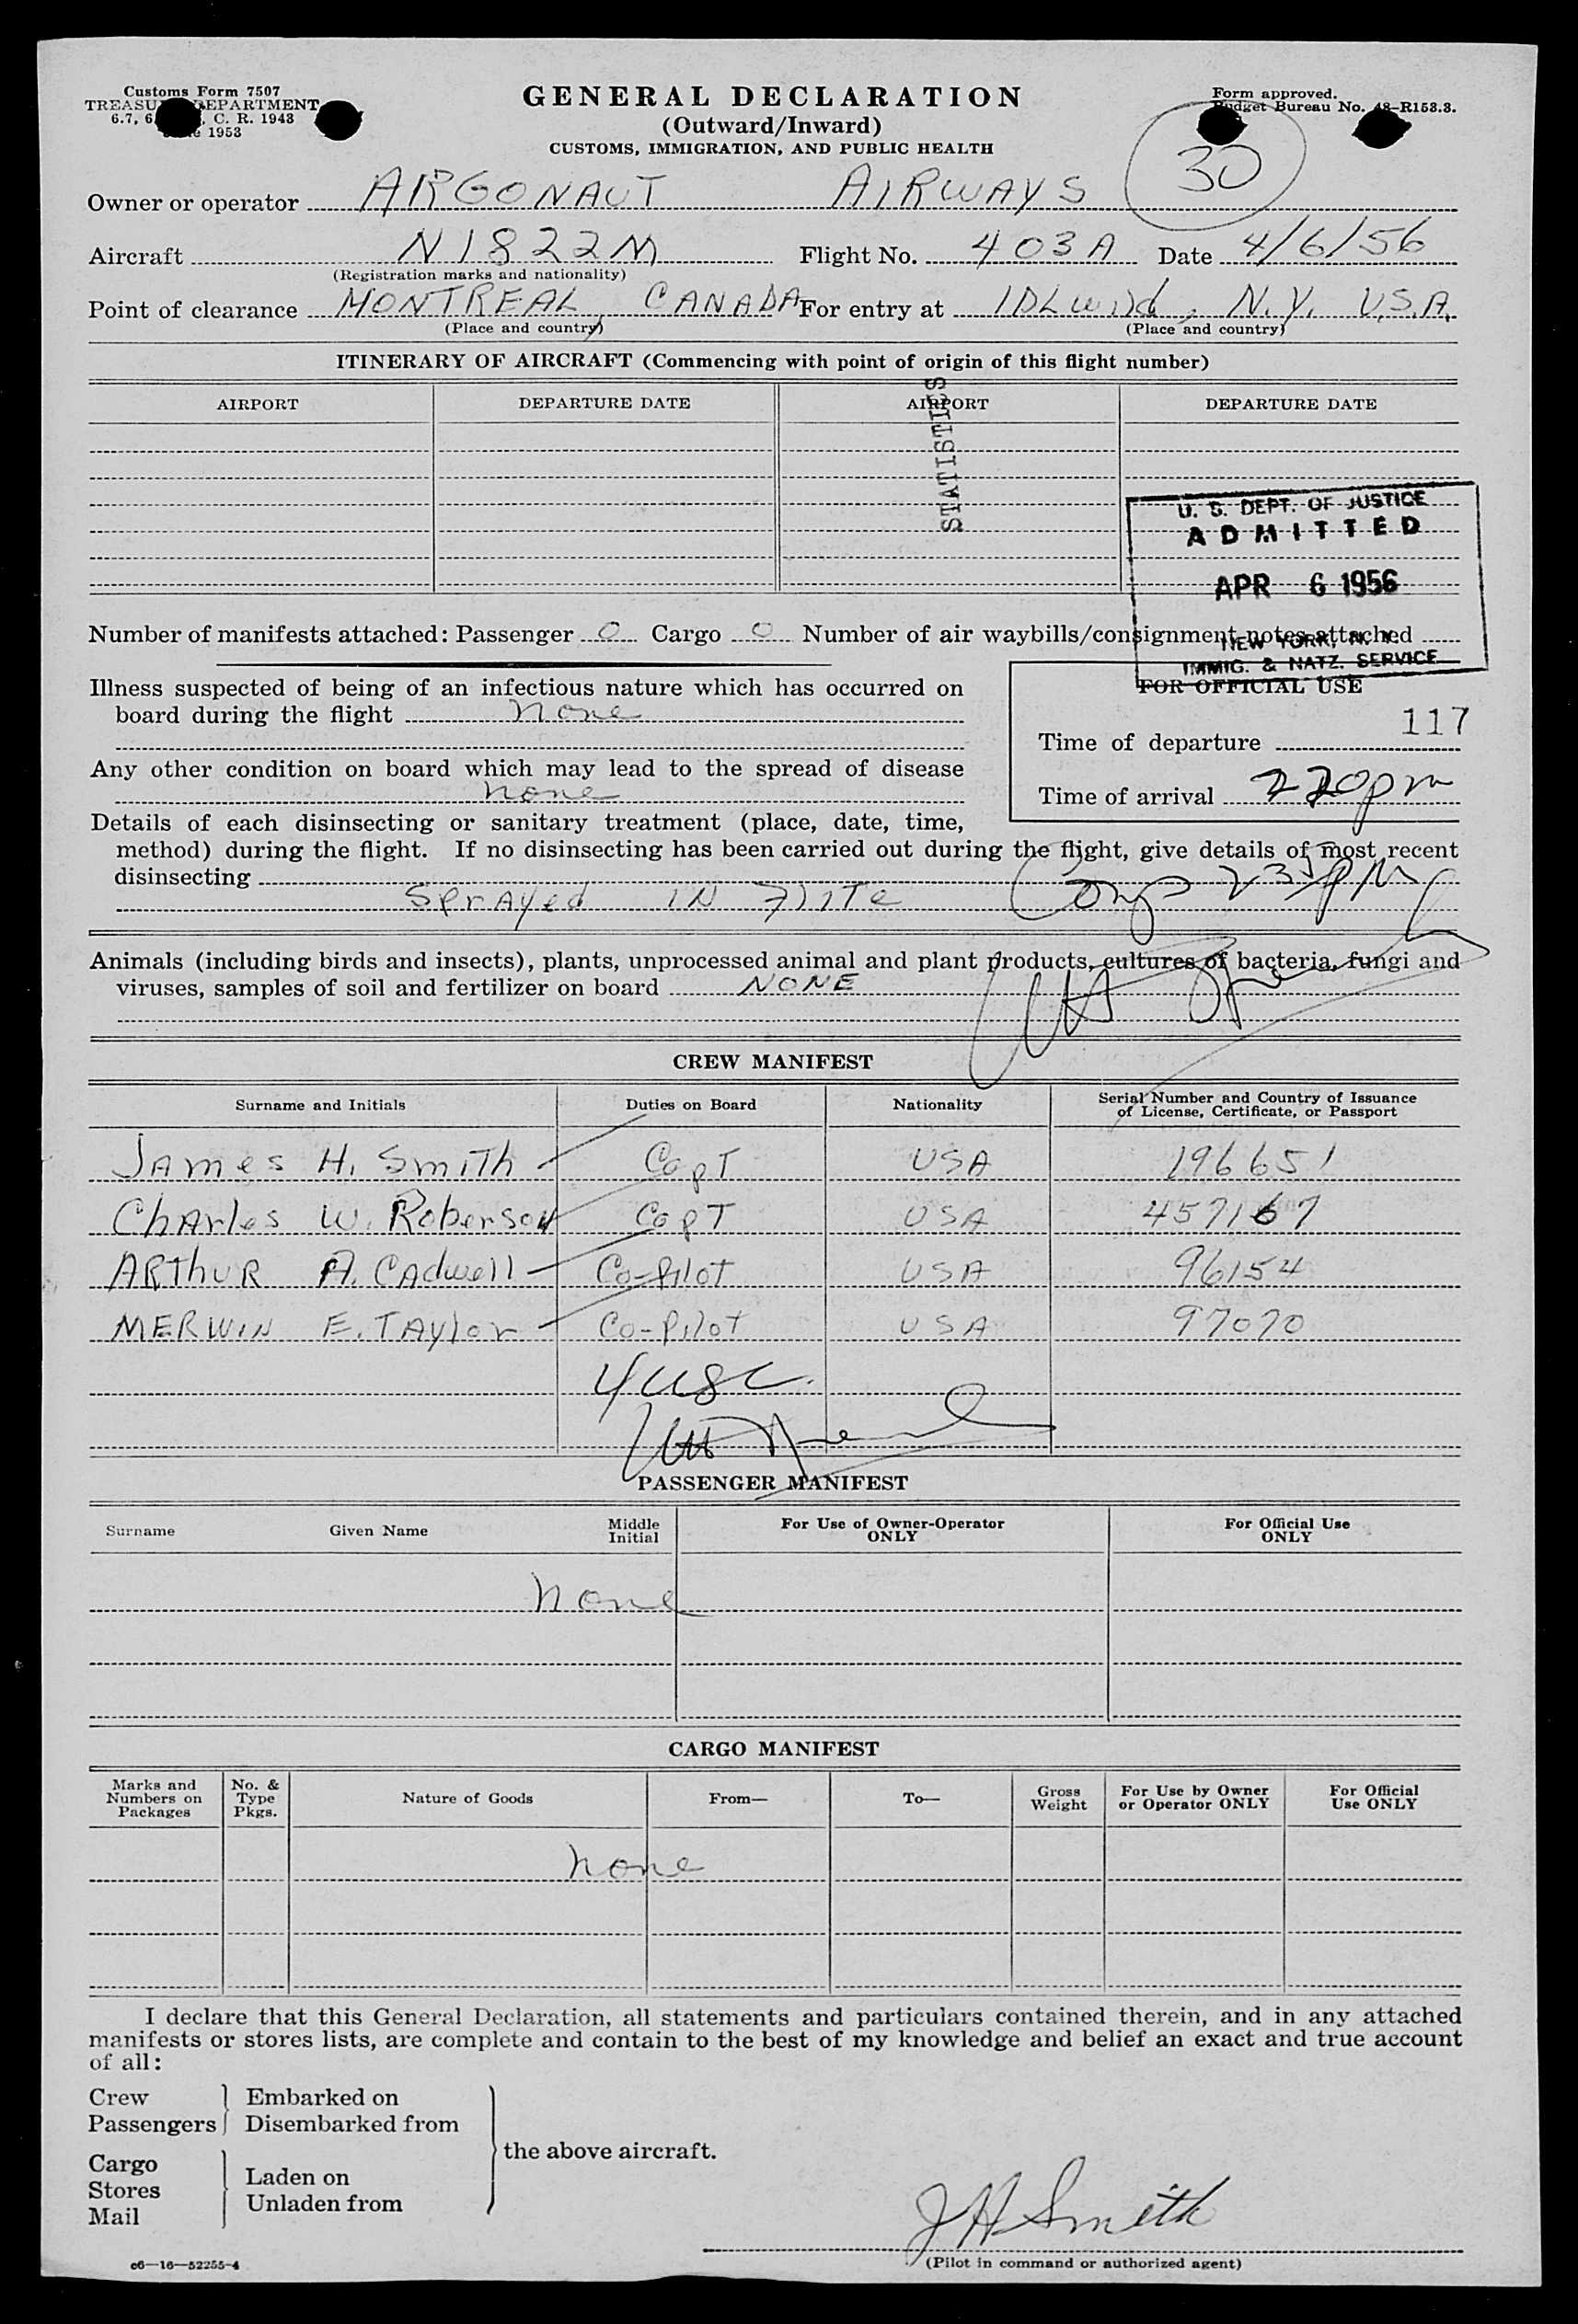 Customs Form 7507
TREASU DEPARTMENT
6.7, 6. C. R. 1943
1953
GENERAL DECLARATION
(Outward/Inward)
CUSTOMS, IMMIGRATION, AND PUBLIC HEALTH
Form approved.
Budget Bureau No. 48-R153.3.
30
Owner or operator ARGONAUT AIRWAYS
Aircraft N1822M Flight No. 403A Date 4/6/56
(Registration marks and nationality)
Point of clearance MONTREAL, CANADA For entry at IDLwild, N.Y. U.S.A.
(Place and country) (Place and country)
ITINERARY OF AIRCRAFT (Commencing with point of origin of this flight number)
AIRPORT DEPARTURE DATE AIRPORT DEPARTURE DATE
STATISTICS
U. S. DEPT. OF JUSTICE
ADMITTED
APR 6 1956
NEW YORK, N. Y.
IMMIG. & NATZ. SERVICE
Number of manifests attached: Passenger 0 Cargo 0 Number of air waybills/consignment notes attached
Illness suspected of being of an infectious nature which has occurred on
board during the flight none
FOR OFFICIAL USE
117
Time of departure
Any other condition on board which may lead to the spread of disease
none
Time of arrival 220pm
Details of each disinsecting or sanitary treatment (place, date, time,
method) during the flight. If no disinsecting has been carried out during the flight, give details of most recent
disinsecting
Sprayed IN FlITe
Comp 235PM
Animals (including birds and insects), plants, unprocessed animal and plant products, cultures of bacteria, fungi and
viruses, samples of soil and fertilizer on board NONE
CREW MANIFEST
Surname and Initials Duties on Board Nationality Serial Number and Country of Issuance
of License, Certificate, or Passport
JAMES H. SMITH CapT USA 196651
ChArles W. Roberson CapT USA 457167
ARThUR A. CAdwell Co-PilOT USA 96154
MERWIN E. TAylor Co-Pilot USA 97070
4 USC.
PASSENGER MANIFEST
Surname Given Name Middle
Initial For Use of Owner-Operator
ONLY For Official Use
ONLY
none
CARGO MANIFEST
Marks and
Numbers on
Packages No. &
Type
Pkgs. Nature of Goods From— To— Gross
Weight For Use by Owner
or Operator ONLY For Official
Use ONLY
none
I declare that this General Declaration, all statements and particulars contained therein, and in any attached
manifests or stores lists, are complete and contain to the best of my knowledge and belief an exact and true account
of all:
Crew Embarked on
Passengers Disembarked from
the above aircraft.
Cargo
Stores Laden on
Mail Unladen from
J H Smith
(Pilot in command or authorized agent)
c6—16—52255-4